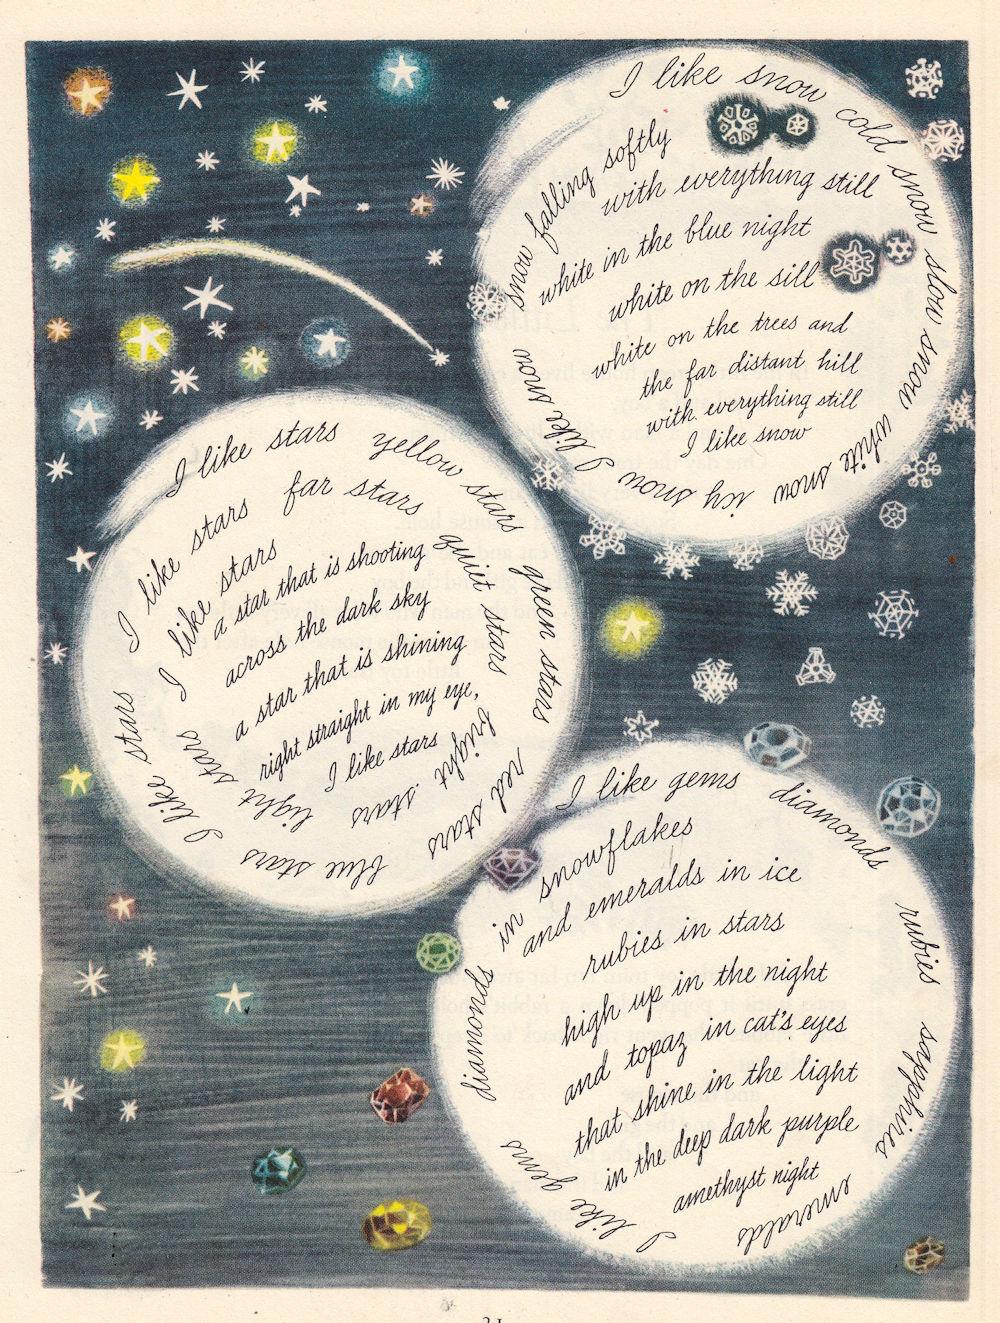 I like snow
cold snow
slow snow
white snow
icy snow
I like snow
snow falling softly
with everything still
white in the blue night
white on the sill
white on the trees and
the far distant hill
with everything still
I like snow
I like stars
yellow stars
green stars
red stars
blue stars
I like stars
I like stars
far stars
quiet stars
bright stars
light stars
I like stars
a star that is shooting
across the dark sky
a star that is shining
right straight in my eye,
I like stars
I like gems
diamonds
rubies
sapphires
emeralds
I like gems
diamonds
in snowflakes
and emeralds in ice
rubies in stars
high up in the night
and topaz in cat's eyes
that shine in the light
in the deep dark purple
amethyst night